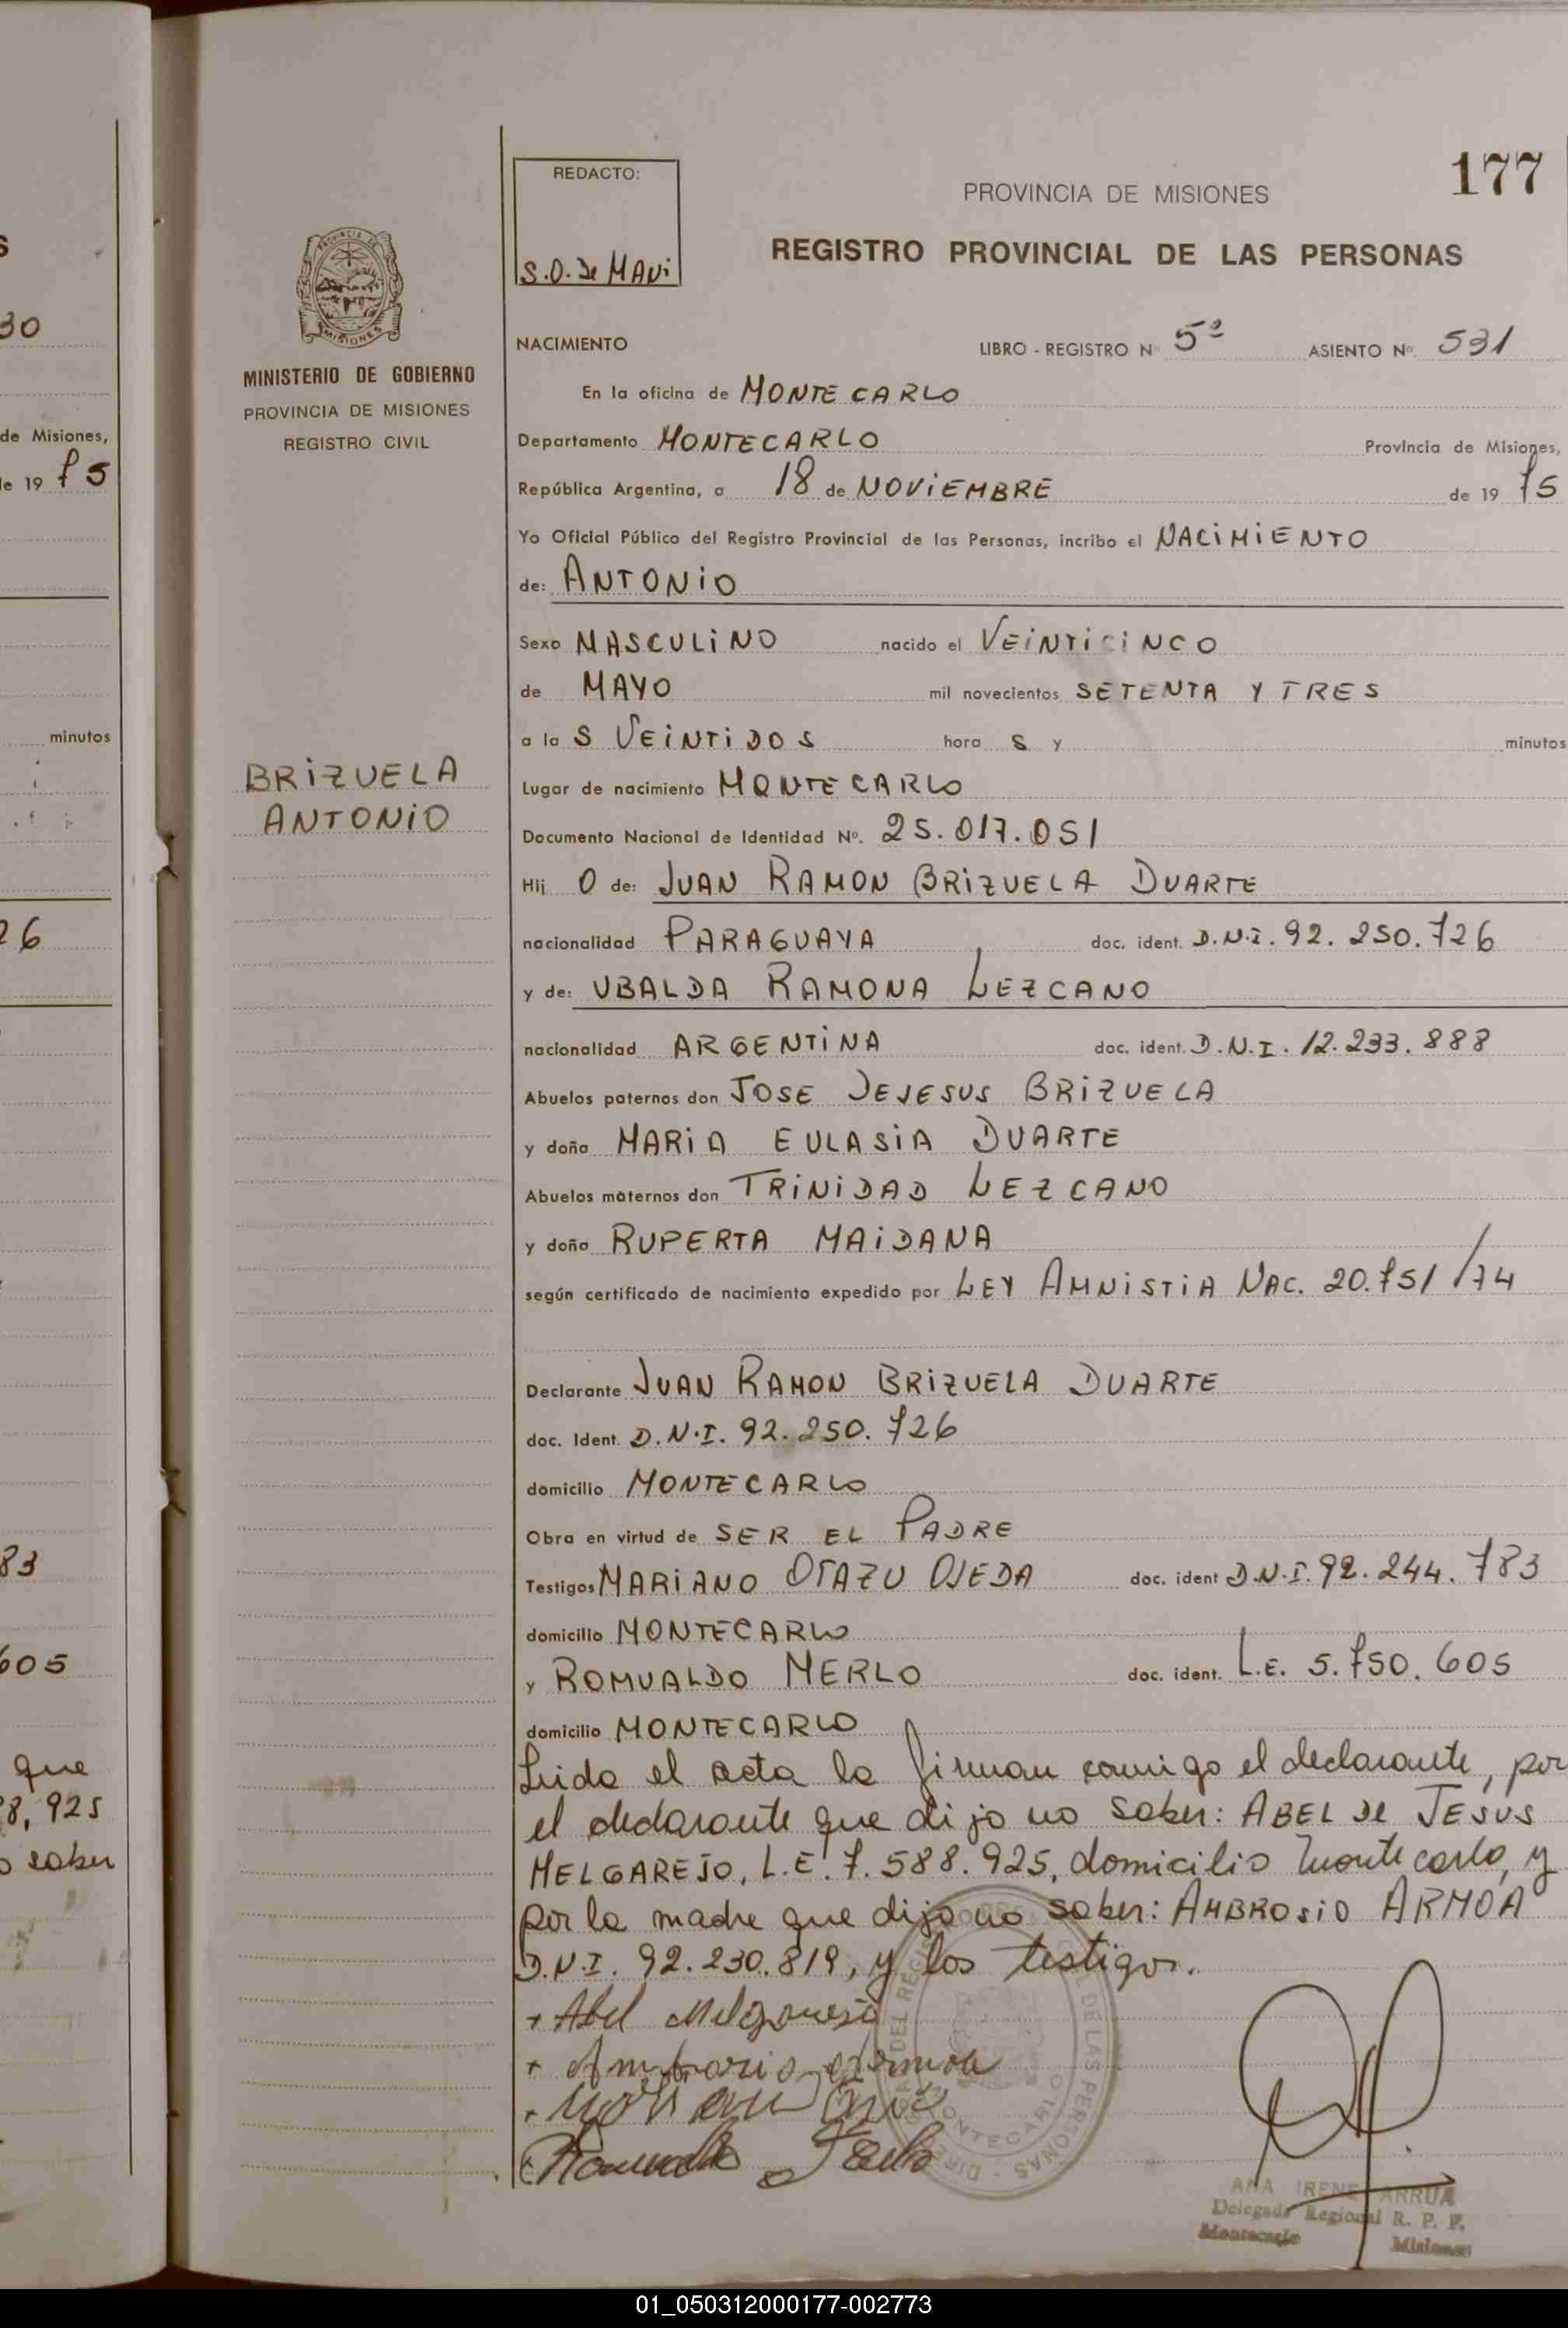 177
REDACTO:
S.O. De MAVi
PROVINCIA DE MISIONES
REGISTRO PROVINCIAL DE LAS PERSONAS
PROVINCIA DE
MISIONES
MINISTERIO DE GOBIERNO
PROVINCIA DE MISIONES
REGISTRO CIVIL
NACIMIENTO LIBRO - REGISTRO Nº 5º ASIENTO Nº. 531
En la oficina de MONTE CARLO
Departamento MONTECARLO Provincia de Misiones,
República Argentina, a 18 de NOViEMBRE de 19 75
Yo Oficial Público del Registro Provincial de las Personas, incribo el NACiMiENTO
de: ANTONiO
Sexo MASCULiNO nacido el VEiNTiCiNCO
de MAYO mil novecientos SETENTA Y TRES
a la S VEiNTiDOS hora S y minutos
Lugar de nacimiento MONTECARLO
Documento Nacional de Identidad Nº. 25.017.051
Hij O de: JUAN RAMON BRiZUELA DUARTE
nacionalidad PARAGUAYA doc. ident. D.N.I. 92.250.726
y de: UBALDA RAMONA LEZCANO
nacionalidad ARGENTiNA doc. ident. D.N.I. 12.233.888
Abuelos paternos don JOSE DEJESUS BRiZUELA
y doña MARiA EULASiA DUARTE
Abuelos maternos don TRiNiDAD LEZCANO
y doña RUPERTA MAiDANA
según certificado de nacimiento expedido por LEY AMNiSTiA NAC. 20.751/74
Declarante JUAN RAMON BRiZUELA DUARTE
doc. Ident. D.N.I. 92.250.726
domicilio MONTECARLO
Obra en virtud de SER EL PADRE
Testigos MARiANO OTAZU OJEDA doc. ident D.N.I. 92.244.783
domicilio MONTECARLO
y ROMUALDO MERLO doc. ident. L.E. 5.750.605
domicilio MONTECARLO
Leida el acta la firman conmigo el declarante, por
el declarante que dijo no saber: ABEL De JESUS
MELGAREJO, L.E. 7.588.925, domicilio Montecarlo, y
por la madre que dijo no saber: AMBROSiO ARMOA
D.N.I. 92.230.819, y los testigos.
+ Abel Melgarejo
+ Ambrosio Armoa
ANA IRENE ARRUA
Delegada Regional R. P. P.
Montecarlo Misiones
BRiZUELA
ANTONiO
S
30
de Misiones,
de 19 75
minutos
26
83
605
que
8.925
saber
MONTECARLO
DE LAS PERSONAS
01_050312000177-002773